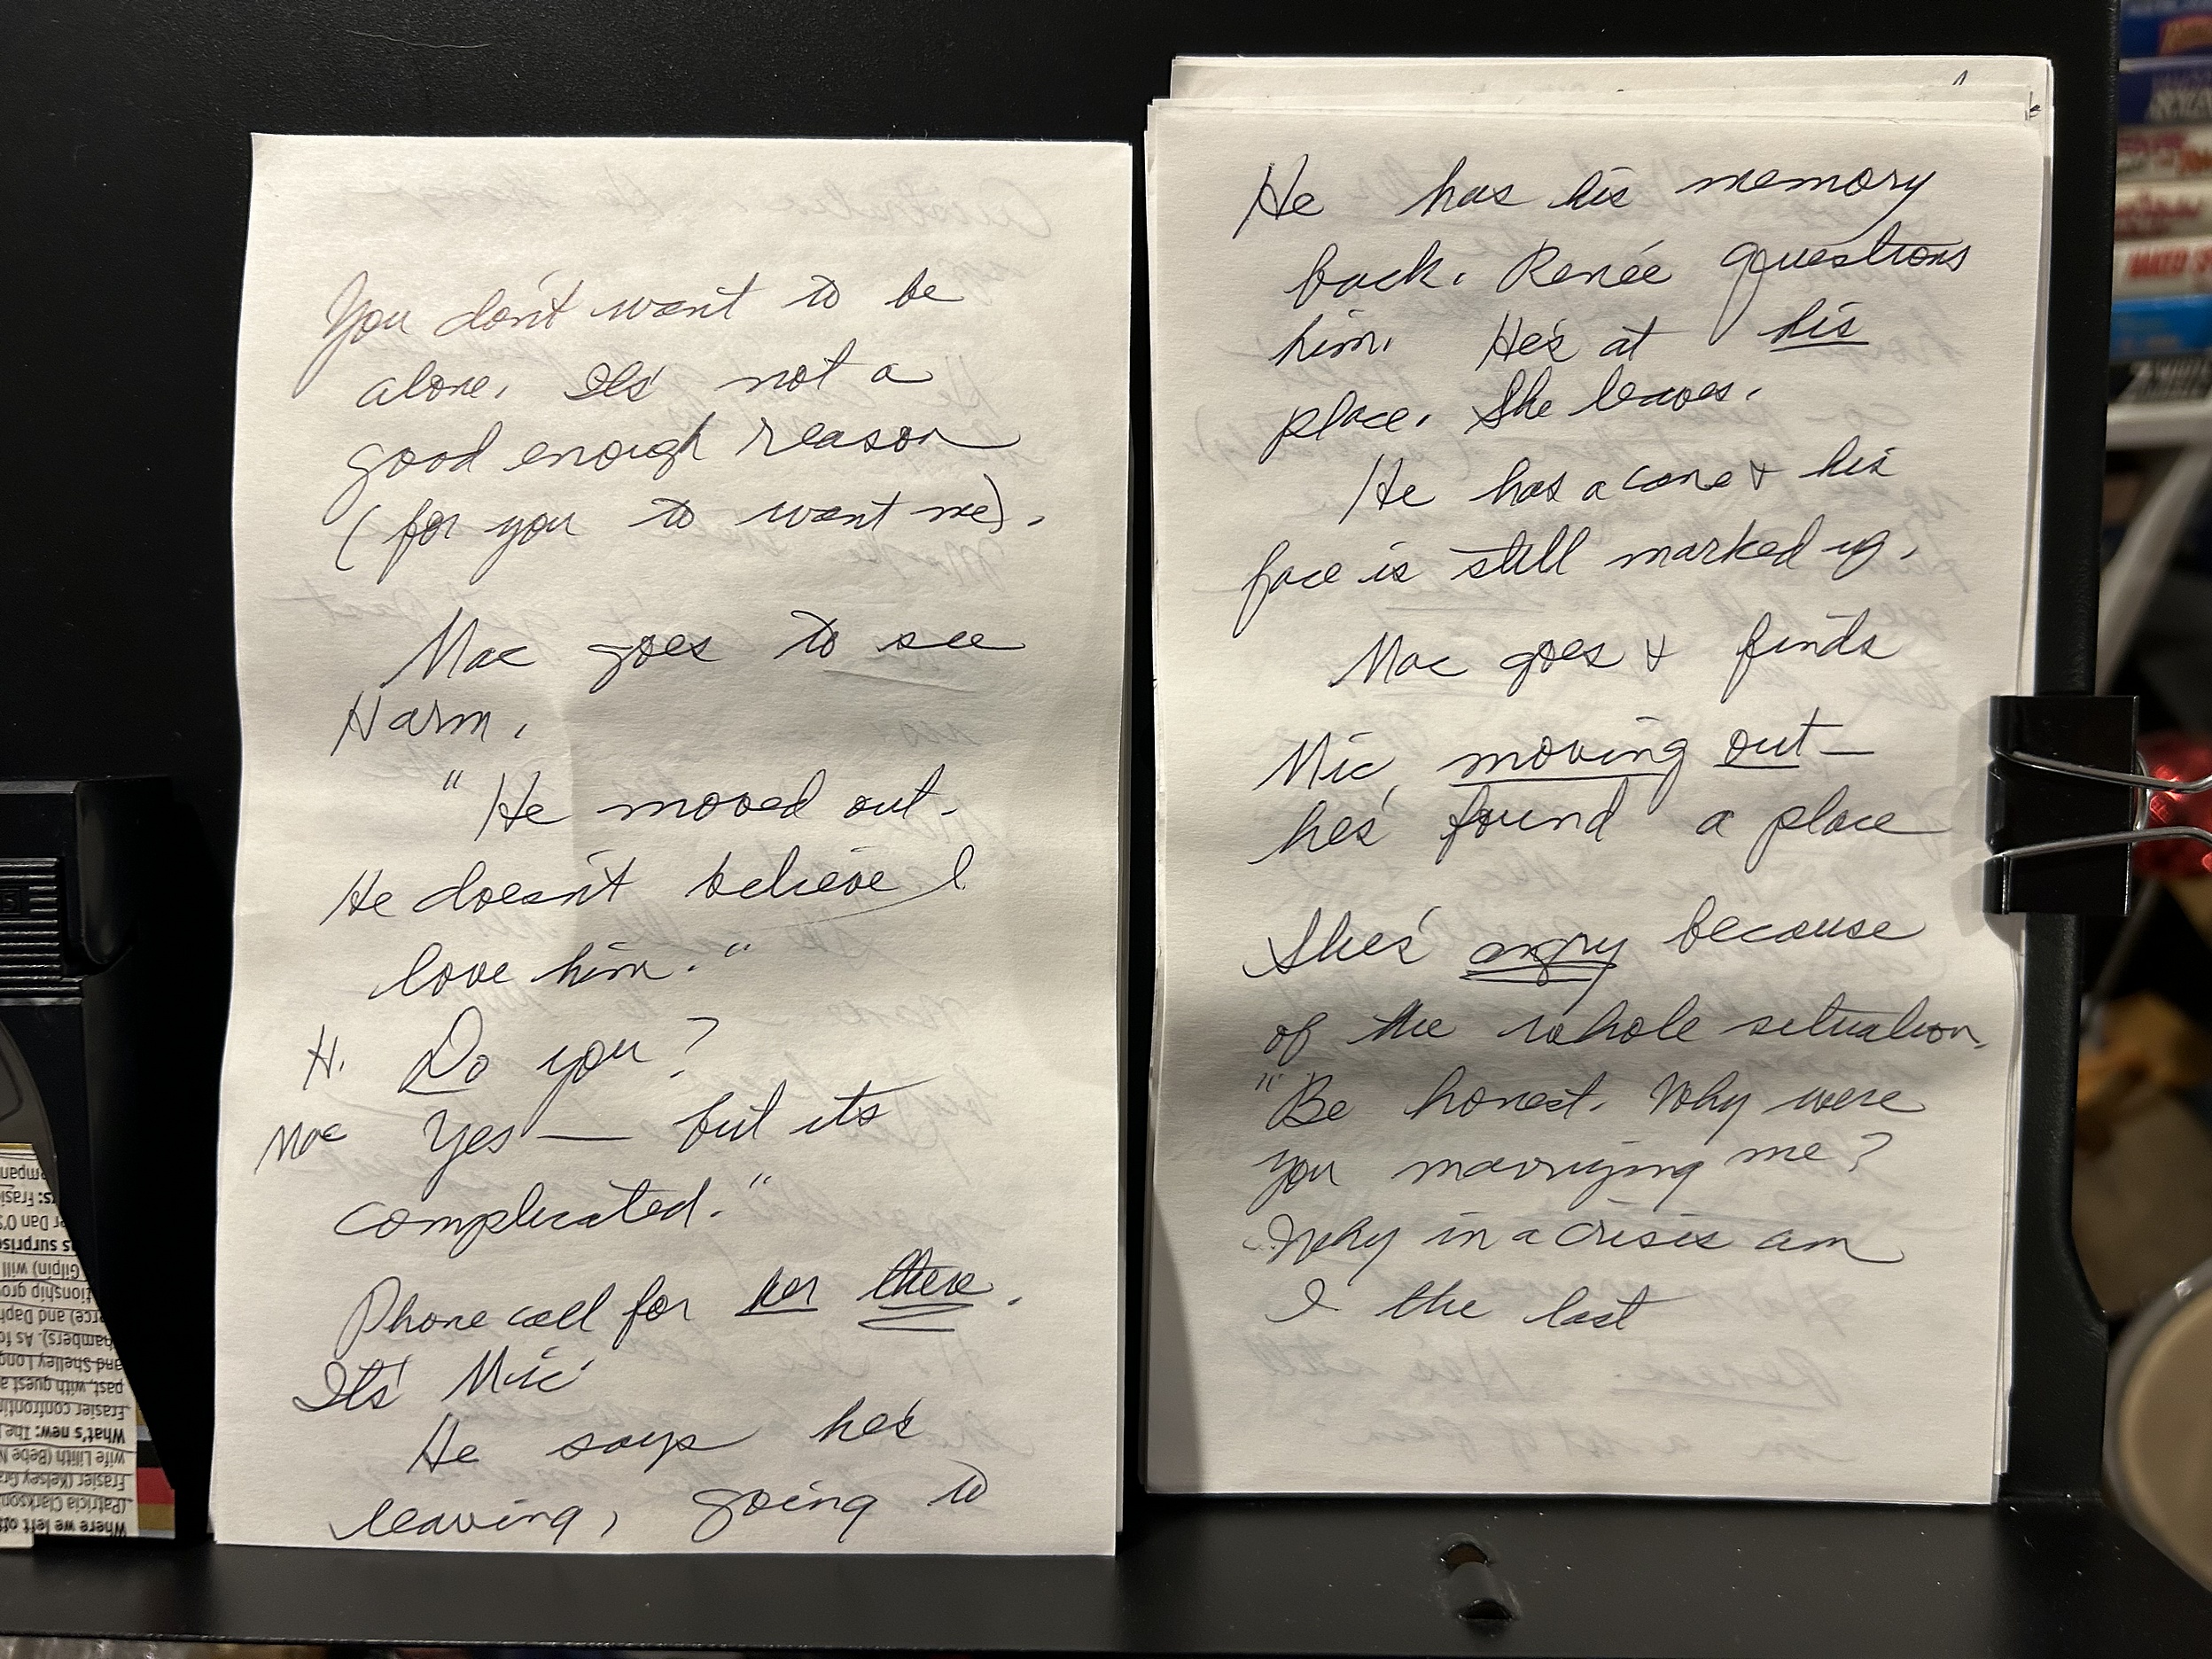 You don't want to be
alone. It's not a
good enough reason
(for you to want me).
Mac goes to see
Harm.
"He moved out.
He doesn't believe I
love him."
H. Do you?
Mac Yes — but it's
complicated."
Phone call for her there.
It's Mic
He says he's
leaving, going to
He has his memory
back. Renée questions
him. He's at his
place. She leaves.
He has a cane & his
face is still marked up.
Mac goes & finds
Mic moving out —
he's found a place
She's angry because
of the whole situation.
"Be honest. Why were
you marrying me?
Why in a crisis am
I the last
Where we left of
(Patricia Clarkson
Frasier (Kelsey Gra
wife Lilith (Bebe N
What's new: The
Frasier confrontin
past, with guest a
and Shelley Long
hambers). As fo
erce) and Daph
tionship grov
Gilpin) will
as surprise
er Dan O'S
s: Frasie
mpan